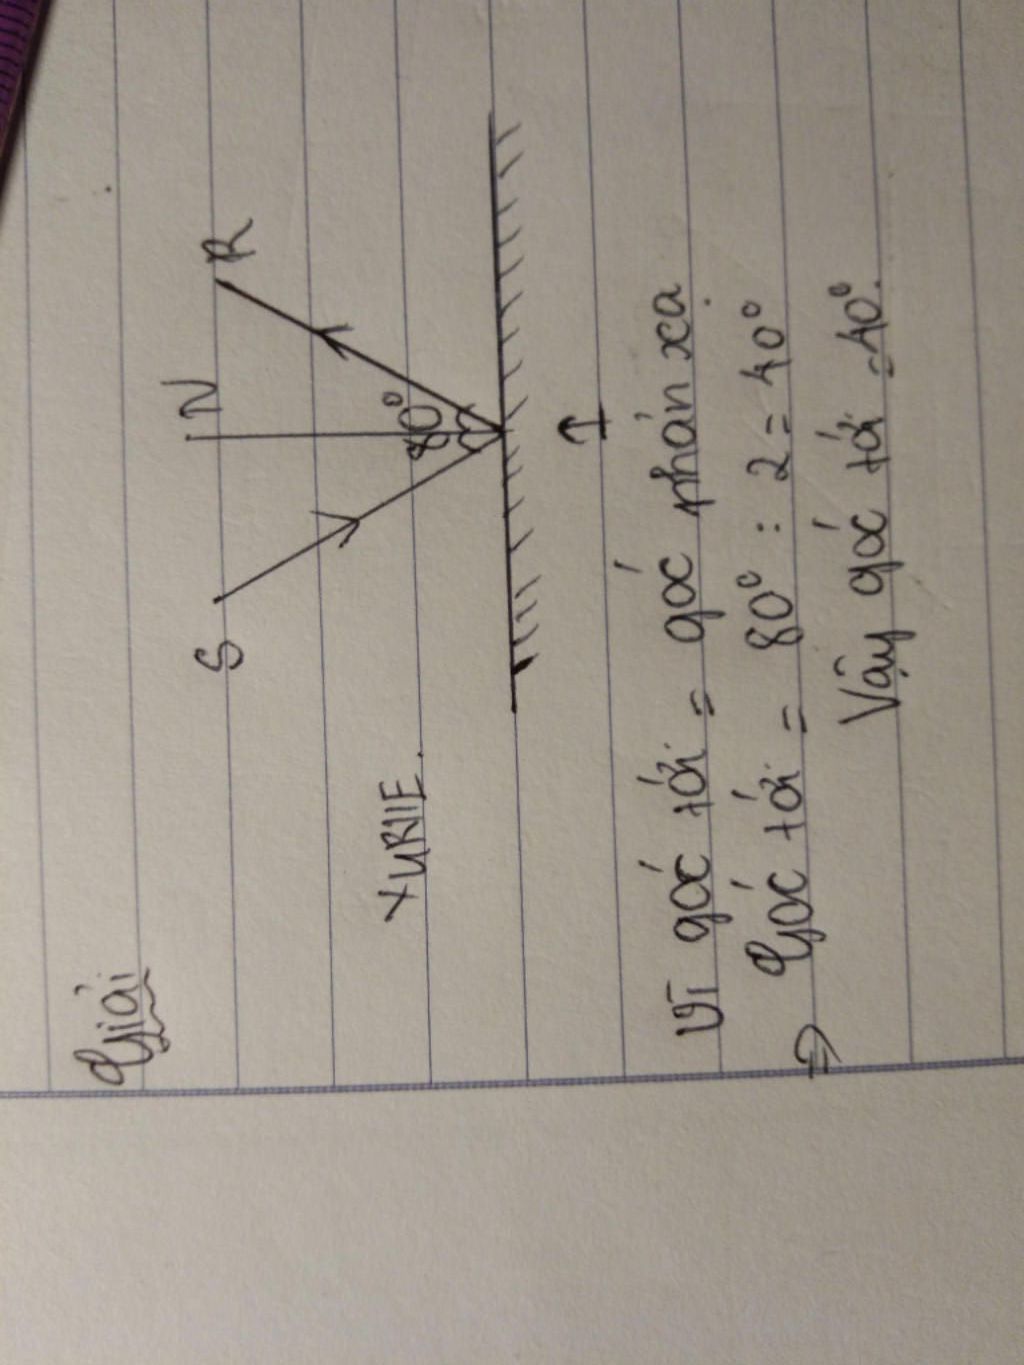 Giải
S
N
R
80°
XURIIE.
I
Vì góc tới = góc phản xạ
⇒ Góc tới = 80° : 2 = 40°
Vậy góc tới = 40°.